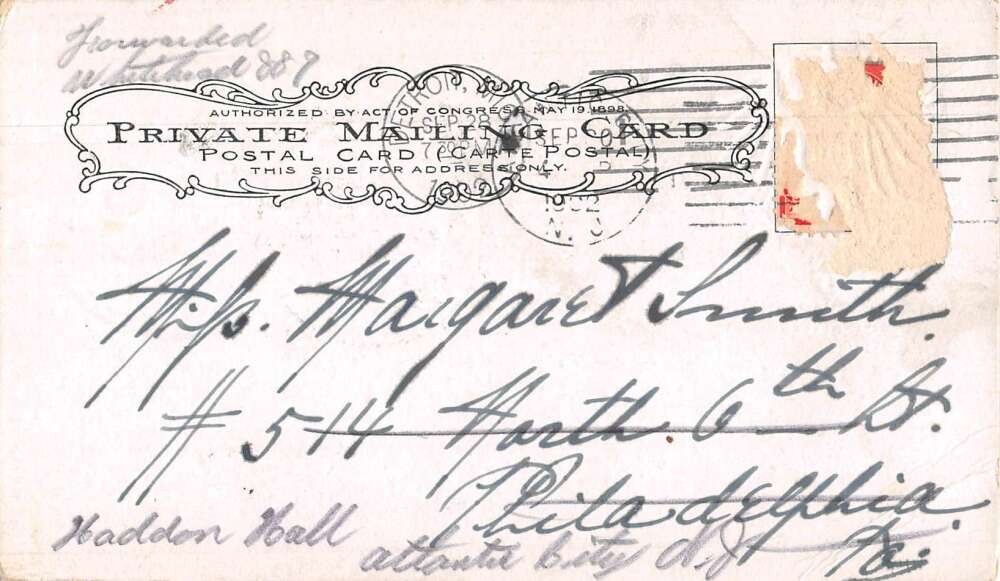 Forwarded
Whitehead 887
AUTHORIZED BY ACT OF CONGRESS MAY 19, 1898.
PRIVATE MAILING CARD
POSTAL CARD (CARTE POSTAL)
THIS SIDE FOR ADDRESS ONLY.
DETROIT,
SEP 28
SEP
1902
Miss. Margaret Smith.
# 514 North 6th St.
Philadelphia.
Pa.
Haddon Hall
Atlantic City N.J